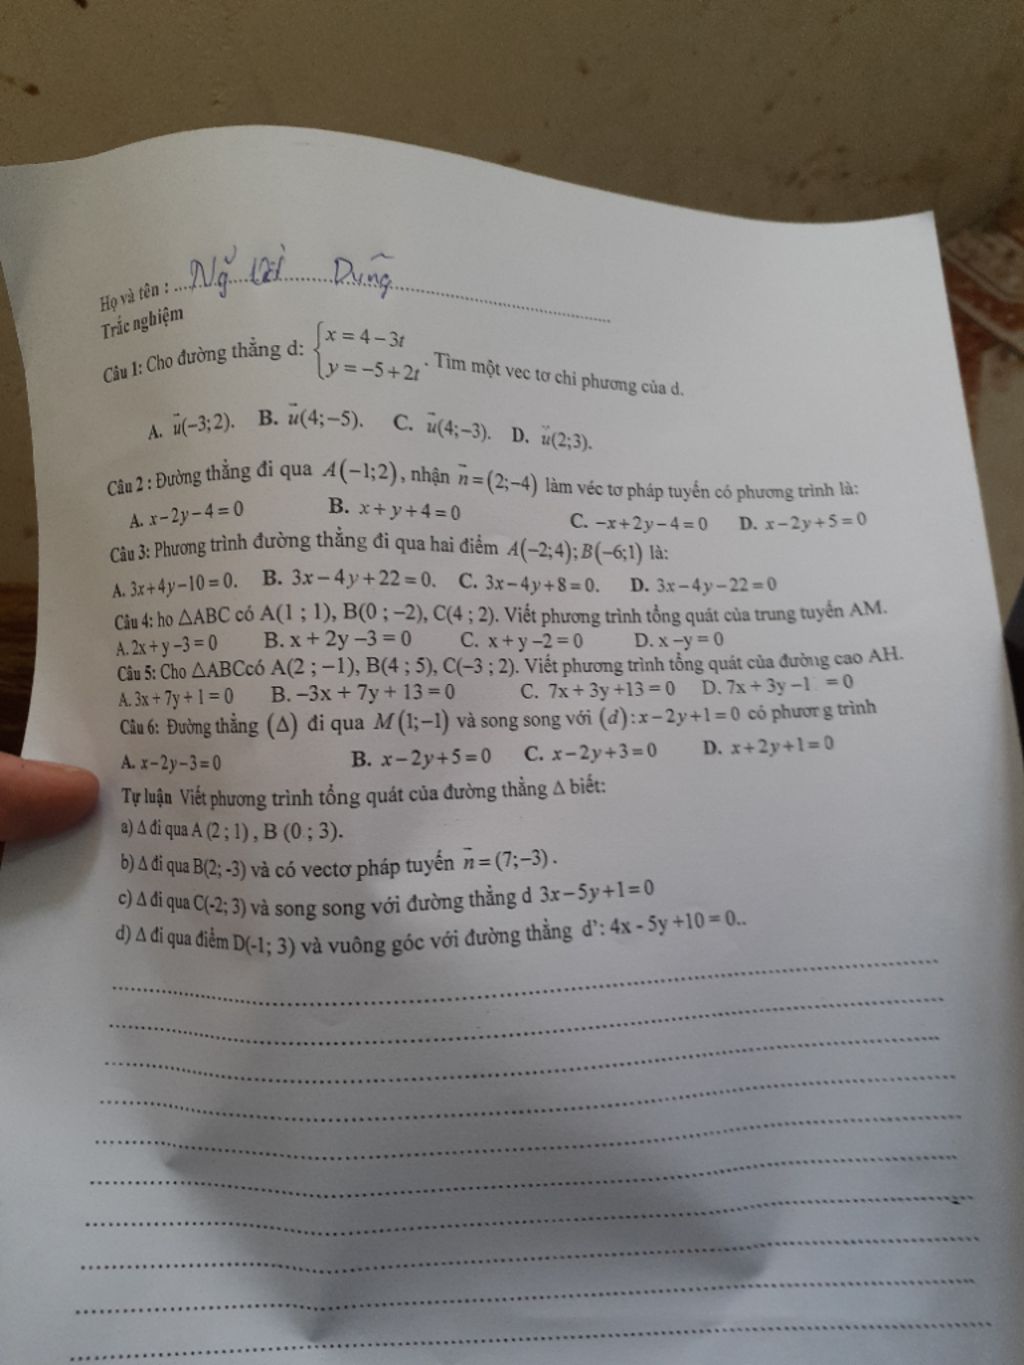 Họ và tên : Dung
Trắc nghiệm
Câu 1: Cho đường thẳng d: { x = 4 − 3t y = −5 + 2t . Tìm một vec tơ chỉ phương của d.
A. u(−3;2). B. u(4;−5). C. u(4;−3). D. u(2;3).
Câu 2 : Đường thẳng đi qua A(−1;2), nhận n = (2;−4) làm véc tơ pháp tuyến có phương trình là:
A. x−2y−4=0 B. x+y+4=0 C. −x+2y−4=0 D. x−2y+5=0
Câu 3: Phương trình đường thẳng đi qua hai điểm A(−2;4); B(−6;1) là:
A. 3x+4y−10=0. B. 3x−4y+22=0. C. 3x−4y+8=0. D. 3x−4y−22=0
Câu 4: ho △ABC có A(1 ; 1), B(0 ; −2), C(4 ; 2). Viết phương trình tổng quát của trung tuyến AM.
A. 2x + y −3 = 0 B. x + 2y −3 = 0 C. x + y −2 = 0 D. x −y = 0
Câu 5: Cho △ABCcó A(2 ; −1), B(4 ; 5), C(−3 ; 2). Viết phương trình tổng quát của đường cao AH.
A. 3x + 7y + 1 = 0 B. −3x + 7y + 13 = 0 C. 7x + 3y +13 = 0 D. 7x + 3y −1 = 0
Câu 6: Đường thẳng (Δ) đi qua M(1;−1) và song song với (d): x−2y+1=0 có phương trình
A. x−2y−3=0 B. x−2y+5=0 C. x−2y+3=0 D. x+2y+1=0
Tự luận Viết phương trình tổng quát của đường thẳng Δ biết:
a) Δ đi qua A (2 ; 1) , B (0 ; 3).
b) Δ đi qua B(2; -3) và có vectơ pháp tuyến n = (7;−3) .
c) Δ đi qua C(-2; 3) và song song với đường thẳng d 3x−5y+1=0
d) Δ đi qua điểm D(-1; 3) và vuông góc với đường thẳng d’: 4x - 5y +10 = 0..